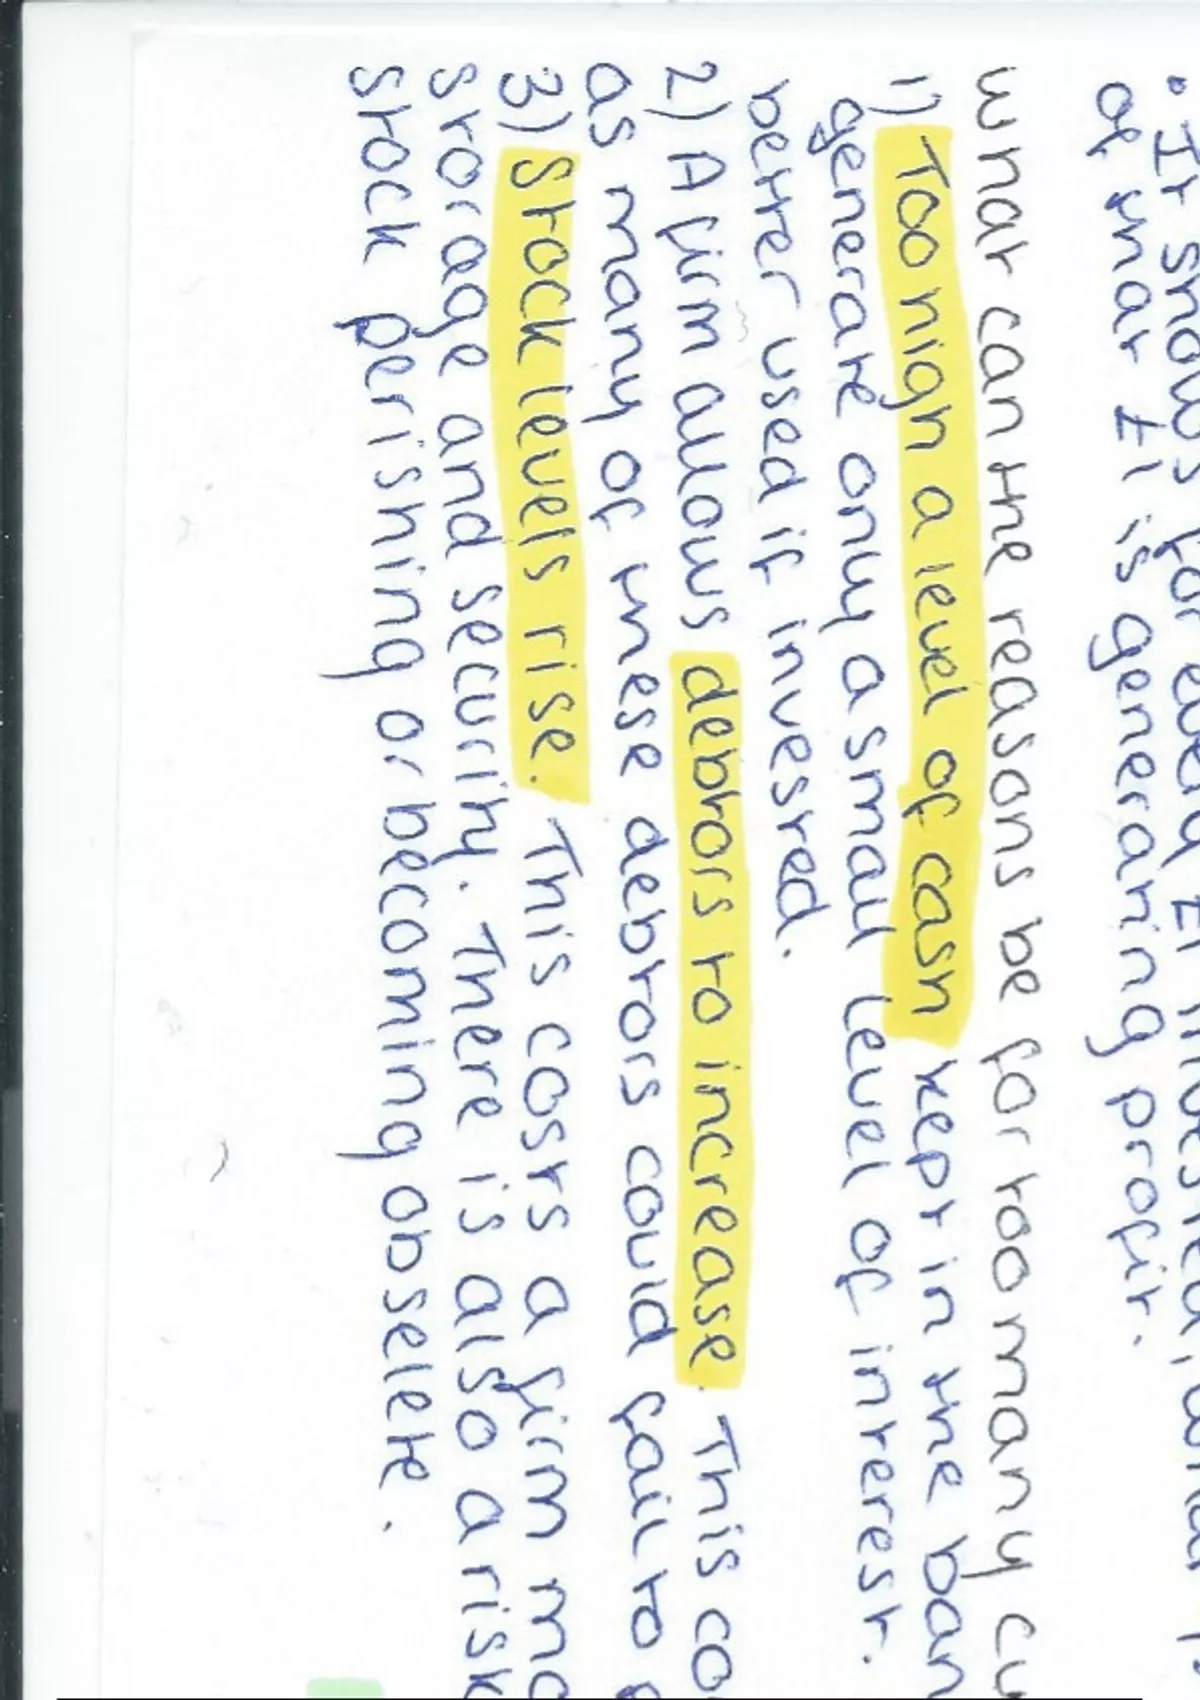 • It shows for every £1 invested, what
of that £1 is generating profit.
what can the reasons be for too many cu
1) Too high a level of cash kept in the ban
generate only a small level of interest.
better used if invested.
2) A firm allows debtors to increase. This co
as many of these debtors could fail to
3) Stock levels rise. This costs a firm mo
storage and security. There is also a risk
stock perishing or becoming obselete.